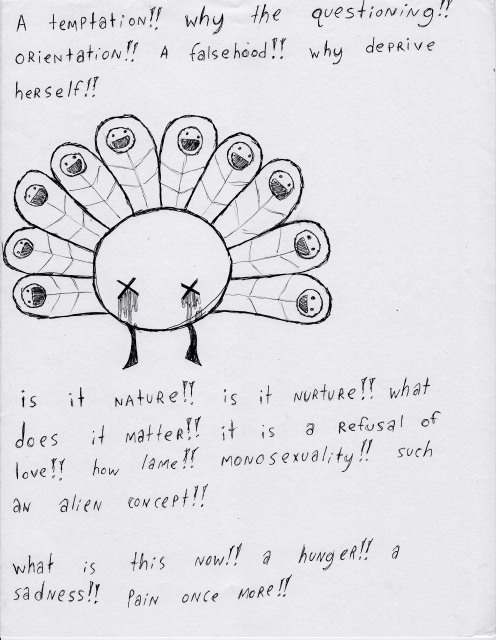 A temptation!! why the questioning!!
orientation!! A falsehood!! why deprive
herself!!
is it nature!! is it nurture!! what
does it matter!! it is a refusal of
love!! how lame!! monosexuality!! such
an alien concept!!
what is this now!! a hunger!! a
sadness!! pain once more!!